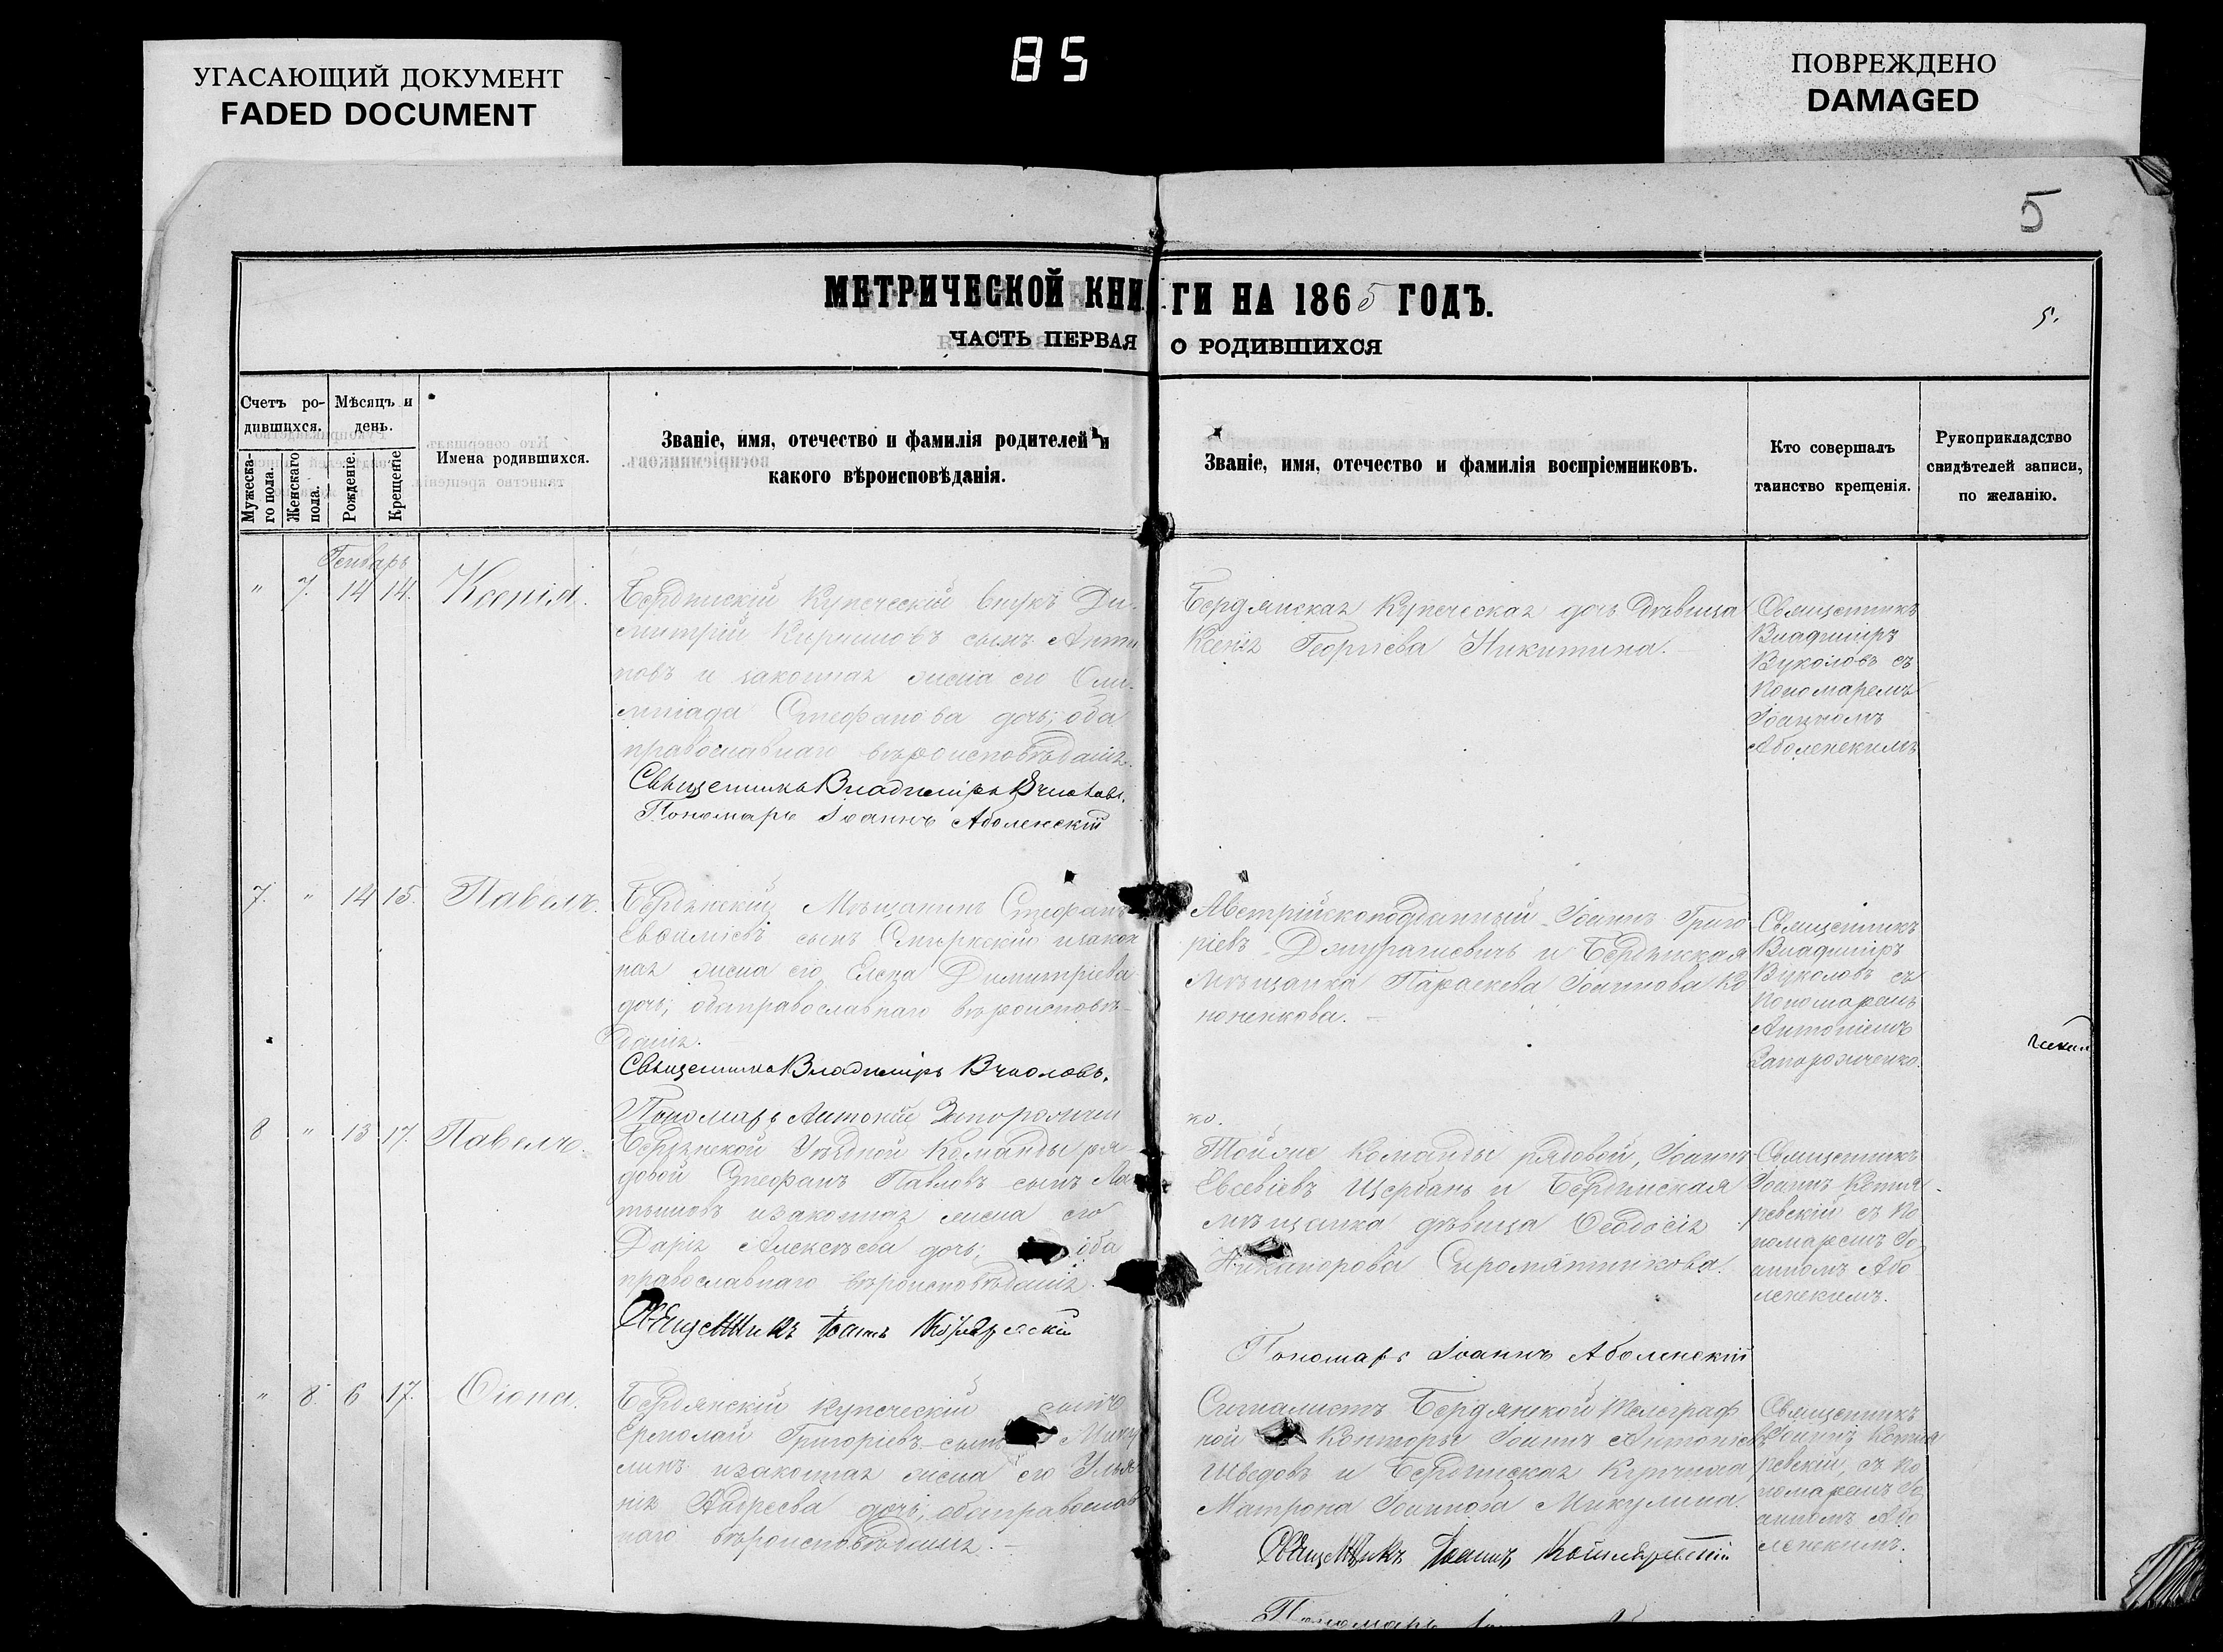 УГАСАЮЩИЙ ДОКУМЕНТ
FADED DOCUMENT
85
ПОВРЕЖДЕНО
DAMAGED
5
МЕТРИЧЕСКОЙ КНИГИ НА 1865 ГОДЪ.
5.
ЧАСТЬ ПЕРВАЯ О РОДИВШИХСЯ
Счетъ ро-
дившихся.
Мужеска-
го пола.
Женскаго
пола.
Мѣсяцъ и
день.
Рожденіе.
Крещеніе
Имена родившихся.
Званіе, имя, отечество и фамилія родителей и
какого вѣроисповѣданія.
Званіе, имя, отечество и фамилія воспріемниковъ.
Кто совершалъ
таинство крещенія.
Рукоприкладство
свидѣтелей записи,
по желанію.
Генварь
" 7. 14 14. Ксенія.
Бердянскій Купеческій внукъ Ди-
митрій Кириловъ сынъ Анти
повъ и законная жена его Оли-
мпіада Стефанова дочь; оба
православнаго вѣроисповѣданія.
Священникъ Владиміръ Вуколовъ.
Пономарь Іоаннъ Аболенскій
Бердянская Купеческая дочь дѣвица
Ксенія Георгіева Никитина.
Священникъ
Владиміръ
Вуколовъ съ
пономаремъ
Іоанномъ
Аболенскимъ
7. " 14 15. Павелъ.
Бердянскій Мѣщанинъ Стефанъ
Евфиміевъ сынъ изакон
ная жена его Елена Димитріева
дочь; обаправославнаго вѣроисповѣ-
данія.
Священникъ Владиміръ Вуколовъ.
Пономарь Антоній Запорожчен
ко.
Австрійскоподданный Іоаннъ Григо
ріевъ и Бердянская
мѣщанка Параскева Іоаннова Ко
ноненкова.
Священникъ
Владиміръ
Вуколовъ съ
пономаремъ
Антоніемъ
Запорожченко.
8 " 13 17. Павелъ.
Бердянской Уѣздной Команды ря-
довой Стефанъ Павловъ сынъ Ла
тышовъ изаконная жена его
Дарія Алексѣева дочь; оба
православнаго вѣроисповѣданія.
Священникъ Іоаннъ Котляревскій
Тойже Команды рядовой, Іоаннъ
Евсевіевъ Щербань и Бердянская
мѣщанка дѣвица Феодосія
Никанорова Сиромятникова.
Пономарь Іоаннъ Аболенскій
Священникъ
Іоаннъ Котля-
ревскій съ по
номаремъ Іо
анномъ Або
ленскимъ.
" 8. 6 17. Фіона.
Бердянскій купеческій сынъ
Ермолай Григоріевъ сынъ Мику
линъ изаконная жена его Улья
нія Андреева дочь; обаправослав
наго вѣроисповѣданія.
Сигналистъ Бердянской Телеграф
ной Конторы Іоаннъ Антоніевъ
Шведовъ и Бердянская Купчиха
Матрона Іоаннова Микулина.
Священникъ Іоаннъ Котляревскій
Пономарь
Священникъ
Іоаннъ Котля
ревскій, съ по
номаремъ Іо
анномъ Або
ленскимъ.